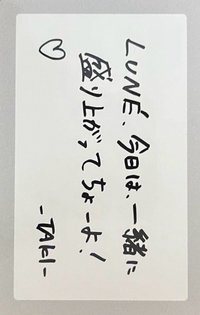 LUNÉ、今日は、一緒に
盛り上がってちょーよ!
♡ -TAKI-